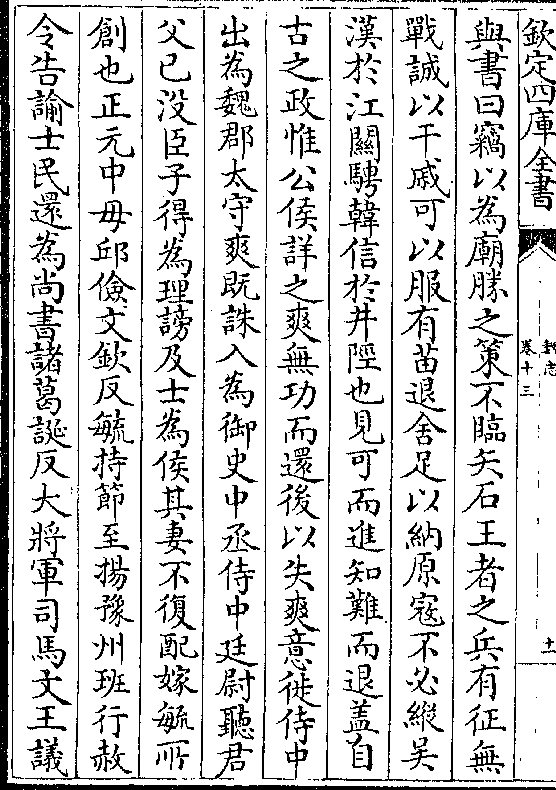 欽定四庫全書
魏志
卷十三
十一
與書曰竊以為廟勝之策不臨矢石王者之兵有征無
戰誠以干戚可以服有苗退舍足以納原寇不必縱吴
漢於江關騁韓信於井陘也見可而進知難而退葢自
古之政惟公侯詳之爽無功而還後以失爽意徙侍中
出為魏郡太守爽既誅入為御史中丞侍中廷尉聽君
父已没臣子得為理謗及士為侯其妻不復配嫁毓所
創也正元中毋邱儉文欽反毓持節至揚豫州班行赦
令告諭士民還為尚書諸葛誕反大將軍司馬文王議